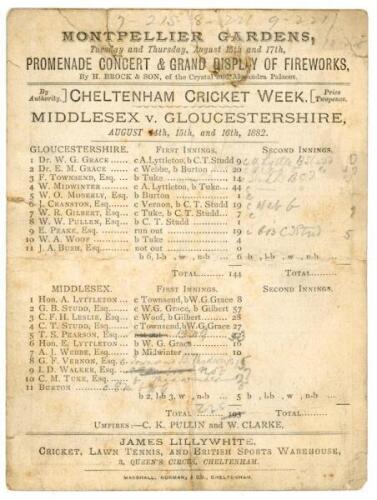 7 215 8-221 9-221
MONTPELLIER GARDENS,
Tuesday and Thursday, August 15th and 17th,
PROMENADE CONCERT & GRAND DISPLAY OF FIREWORKS,
By H. BROCK & SON, of the Crystal and Alexandra Palaces.
By Authority.] CHELTENHAM CRICKET WEEK. [Price Twopence.
MIDDLESEX v. GLOUCESTERSHIRE,
AUGUST 14th, 15th, and 16th, 1882.
GLOUCESTERSHIRE. FIRST INNINGS. SECOND INNINGS.
1 Dr. W. G. GRACE ... c A. Lyttleton, b C.T. Studd 9
2 Dr. E. M. GRACE ... c Webbe, b Burton 20
3 F. TOWNSEND, Esq... b Tuke 14
4 W. MIDWINTER ... c A. Lyttleton, b Tuke 44
5 W. O. MOBERLY, Esq. b Burton 0
6 J. CRANSTON, Esq ... c Vernon, b C.T. Studd 19
7 W. R. GILBERT, Esq... c Tuke, b C.T. Studd... 7
8 W. W. PULLEN, Esq... b C. T. Studd 1
9 E. PEAKE, Esq... run out 9
10 W. A. WOOF ... b Tuke 4
11 J. A. BUSH, Esq... not out 10
b 6, l-b , w , n-b 6 b , l-b , w , n-b
TOTAL ......... 144 TOTAL.........
MIDDLESEX. FIRST INNINGS. SECOND INNINGS.
1 Hon. A. LYTTLETON ... c Townsend, b W.G. Grace 8
2 G. B. STUDD, Esq... c W.G. Grace, b Gilbert 57
3 C. F. H. LESLIE, Esq... c Woof, b Gilbert 28
4 C. T. STUDD, Esq... c Townsend, b W.G. Grace 27
5 T. S. PEARSON, Esq...
6 Hon. E. LYTTLETON ... b W. G. Grace
7 A. J. WEBBE, Esq... b Midwinter 10
8 G. F. VERNON, Esq...
9 I. D. WALKER, Esq...
10 C. M. TUKE, Esq...
11 BURTON
b 2, l-b 3, w , n-b 5 b , l-b , w , n-b
TOTAL 103 TOTAL .........
UMPIRES:—C. K. PULLIN and W. CLARKE.
JAMES LILLYWHITE,
CRICKET, LAWN TENNIS, AND BRITISH SPORTS WAREHOUSE,
3, QUEEN'S CIRCUS, CHELTENHAM.
MARSHALL, NORMAN, & CO., CHELTENHAM.